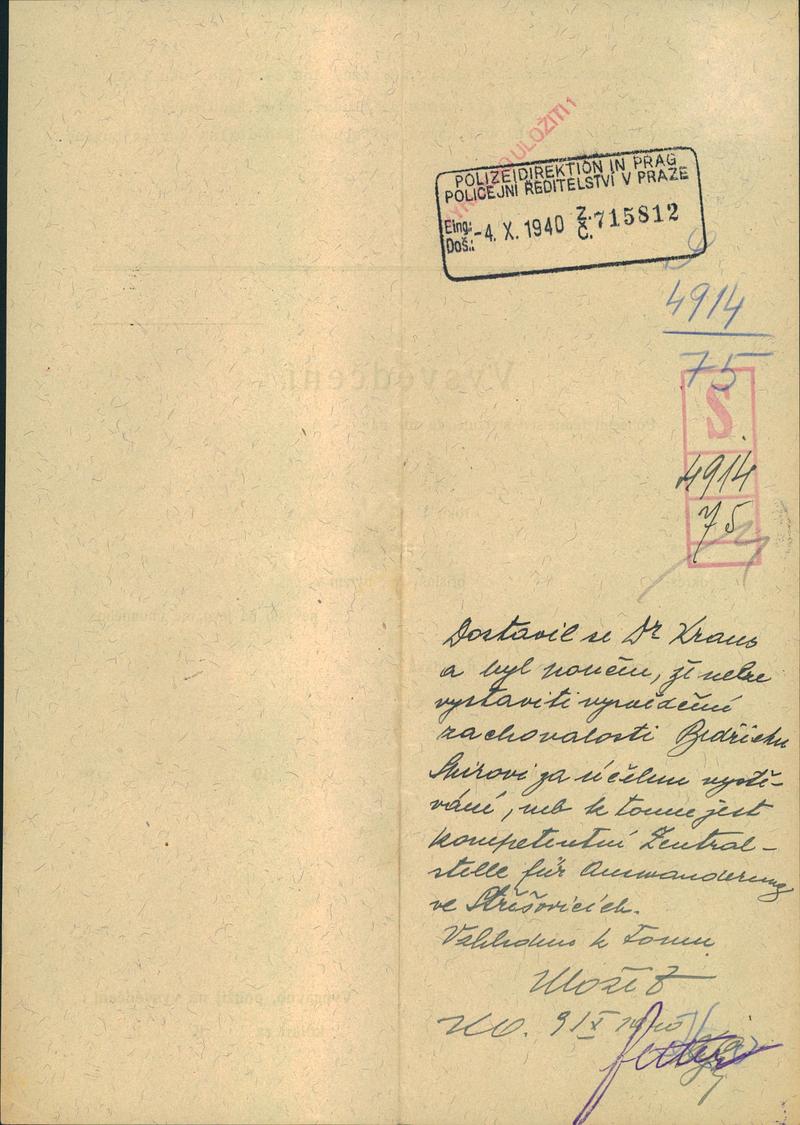 ULOŽITI !
POLIZEIDIREKTION IN PRAG
POLICEJNÍ ŘEDITELSTVÍ V PRAZE
Eing.: Z.
Doš.: -4. X. 1940 Č. 715812
4914
75
S
4914
75
Dostavil se Dr Kraus
a byl poučen, že nelze
vystaviti vysvědčení
zachovalosti Bedřichu
za účelem vystě-
vání, neb k tomu jest
kompetentní Zentral-
stelle für Auswanderung
ve Střešovicích.
Vzhledem k tomu
Uložit
9/X 1940
Vysvědčení